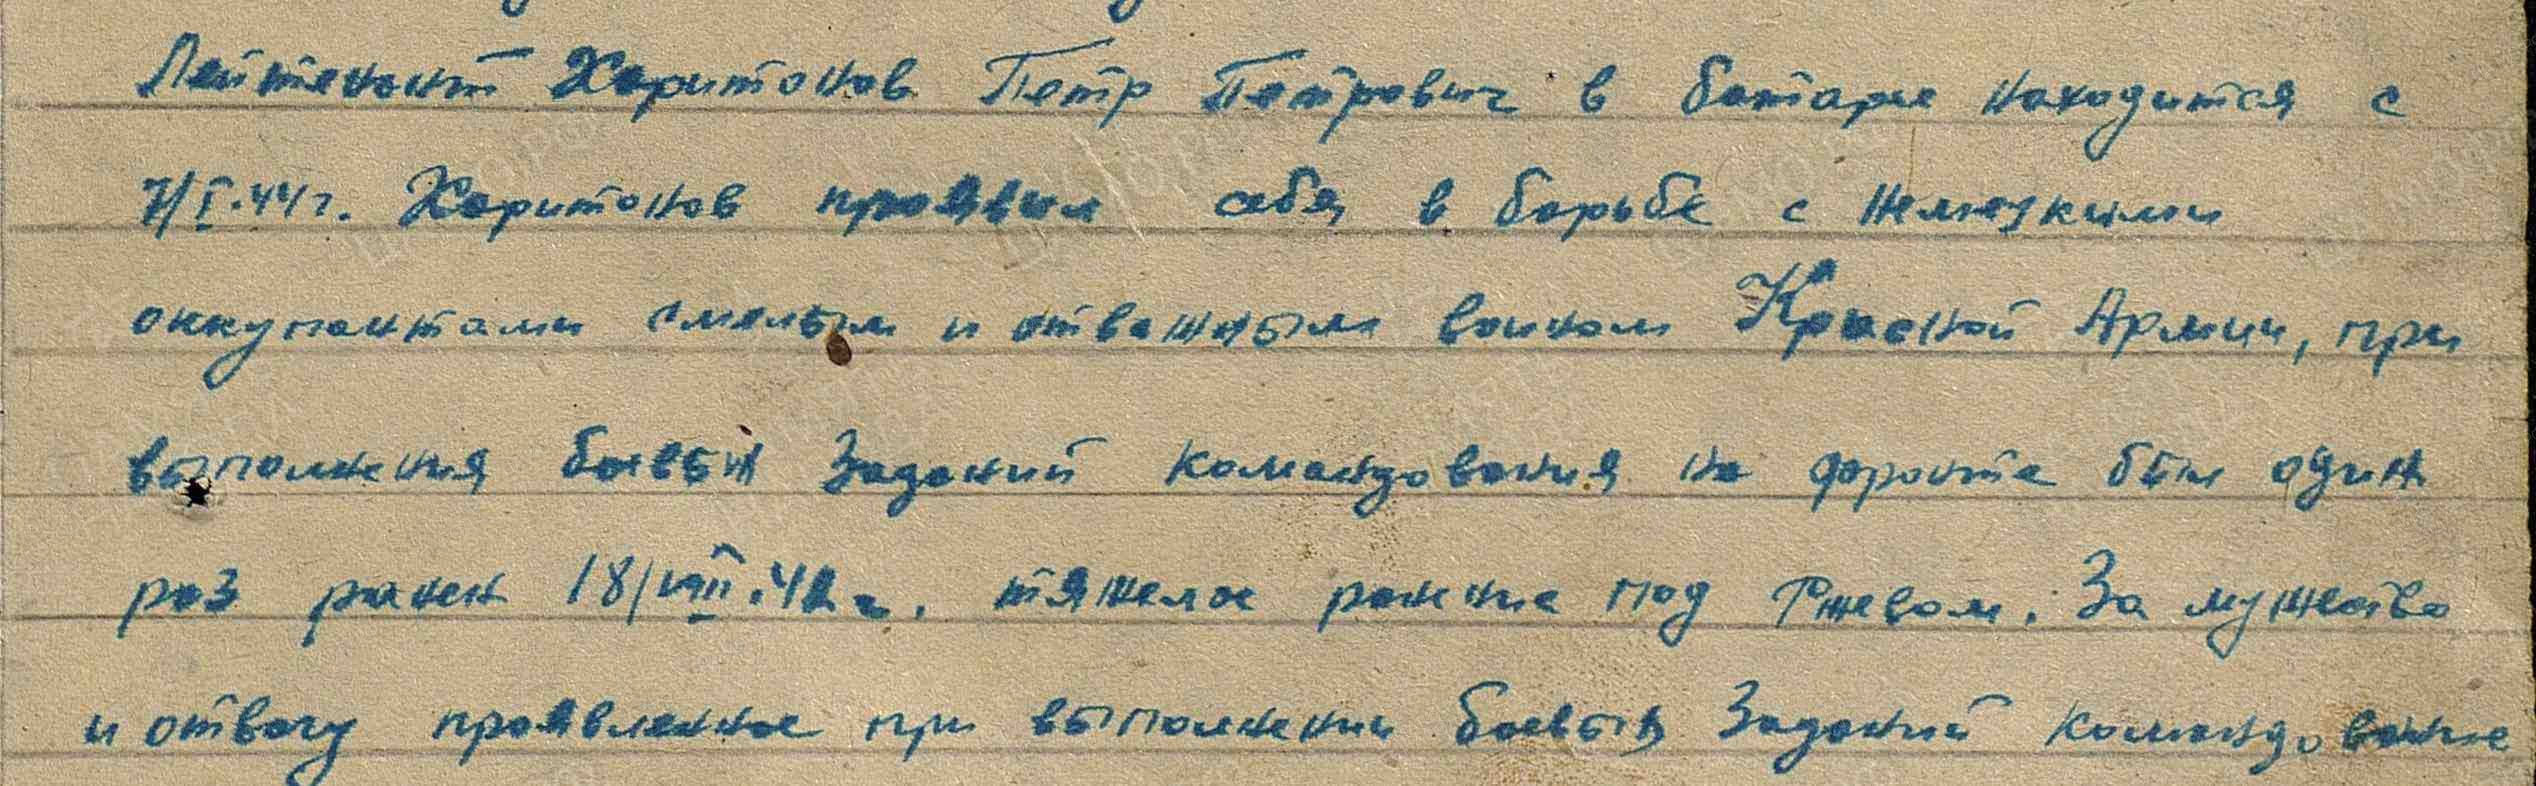 Лейтенант Харитонов Петр Петрович в батарее находится с
7/I.44г. Харитонов проявил себя в борьбе с немецкими
оккупантами смелым и отважным воином Красной Армии, при
выполнения боевых заданий командования на фронте был один
раз ранен 18/VIII.42г. тяжелое ранние под Ржевом. За мужество
и отвагу проявленное при выполнении боевых заданий командование